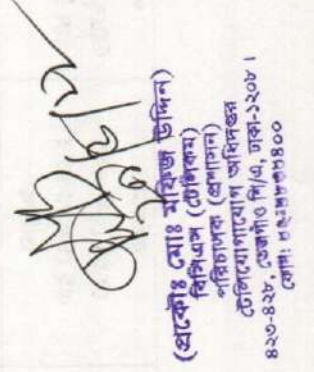 (প্রকৌঃ মোঃ মফিজ উদ্দিন)
বিসিএস (টেলিকম)
পরিচালক (প্রশাসন)
টেলিযোগাযোগ অধিদপ্তর
৪২৩-৪২৮, তেজগাঁও শি/এ, ঢাকা-১২০৮।
ফোনঃ